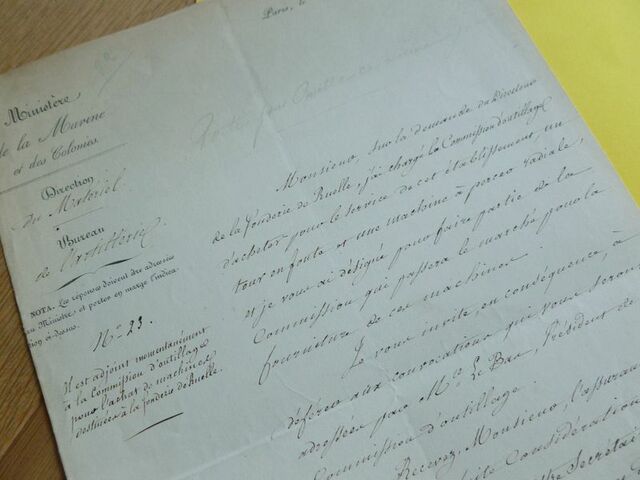 Paris, le
Ministère
de la Marine
et des Colonies.
Direction
du Matériel
Bureau
de l'Artillerie
NOTA. Les réponses doivent être adressées
au Ministre, et porter en marge l'indica-
tion ci-dessus.
N.º 23.
Il est adjoint momentanément
à la Commission d'outillage
pour l'achat de machines
destinées à la fonderie de Ruelle.
Monsieur, sur la demande du Directeur
de la fonderie de Ruelle, j'ai chargé la Commission d'outillage
d'acheter pour le service de cet établissement, un
tour en fonte et une machine à percer radiale,
et je vous ai désigné pour faire partie de la
Commission qui passera le marché pour la
fourniture de ces machines.
Je vous invite, en conséquence, à
déférer aux convocations qui vous seront
adressées par Mr. Le Bas, Président de
Commission d'outillage.
Recevez, Monsieur, l'assuran
Considération
Secrétai